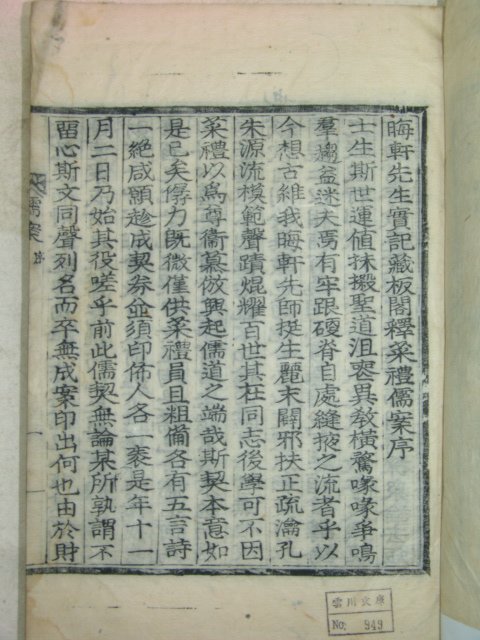 晦軒先生實記藏板閣釋菜禮儒案序
士生斯世運値抹摋聖道沮喪異敎橫騖喙喙爭鳴
羣趨益迷夫焉有牢跟硬脊自處縫掖之流者乎以
今想古維我晦軒先師挺生麗末闢邪扶正疏瀹孔
朱源流模範聲蹟焜耀百世其在同志後學可不因
菜禮以爲尊衛慕倣興起儒道之端哉斯契本意如
是已矣孱力旣微僅供菜禮員且粗備各有五言詩
一絶咸願趁成契券並須印佈人各一袠是年十一
月二日乃始其役嗟乎前此儒契無論某所孰謂不
留心斯文同聲列名而卒無成案印出何也由於財
儒案 序
一
雲川文庫
No. 949